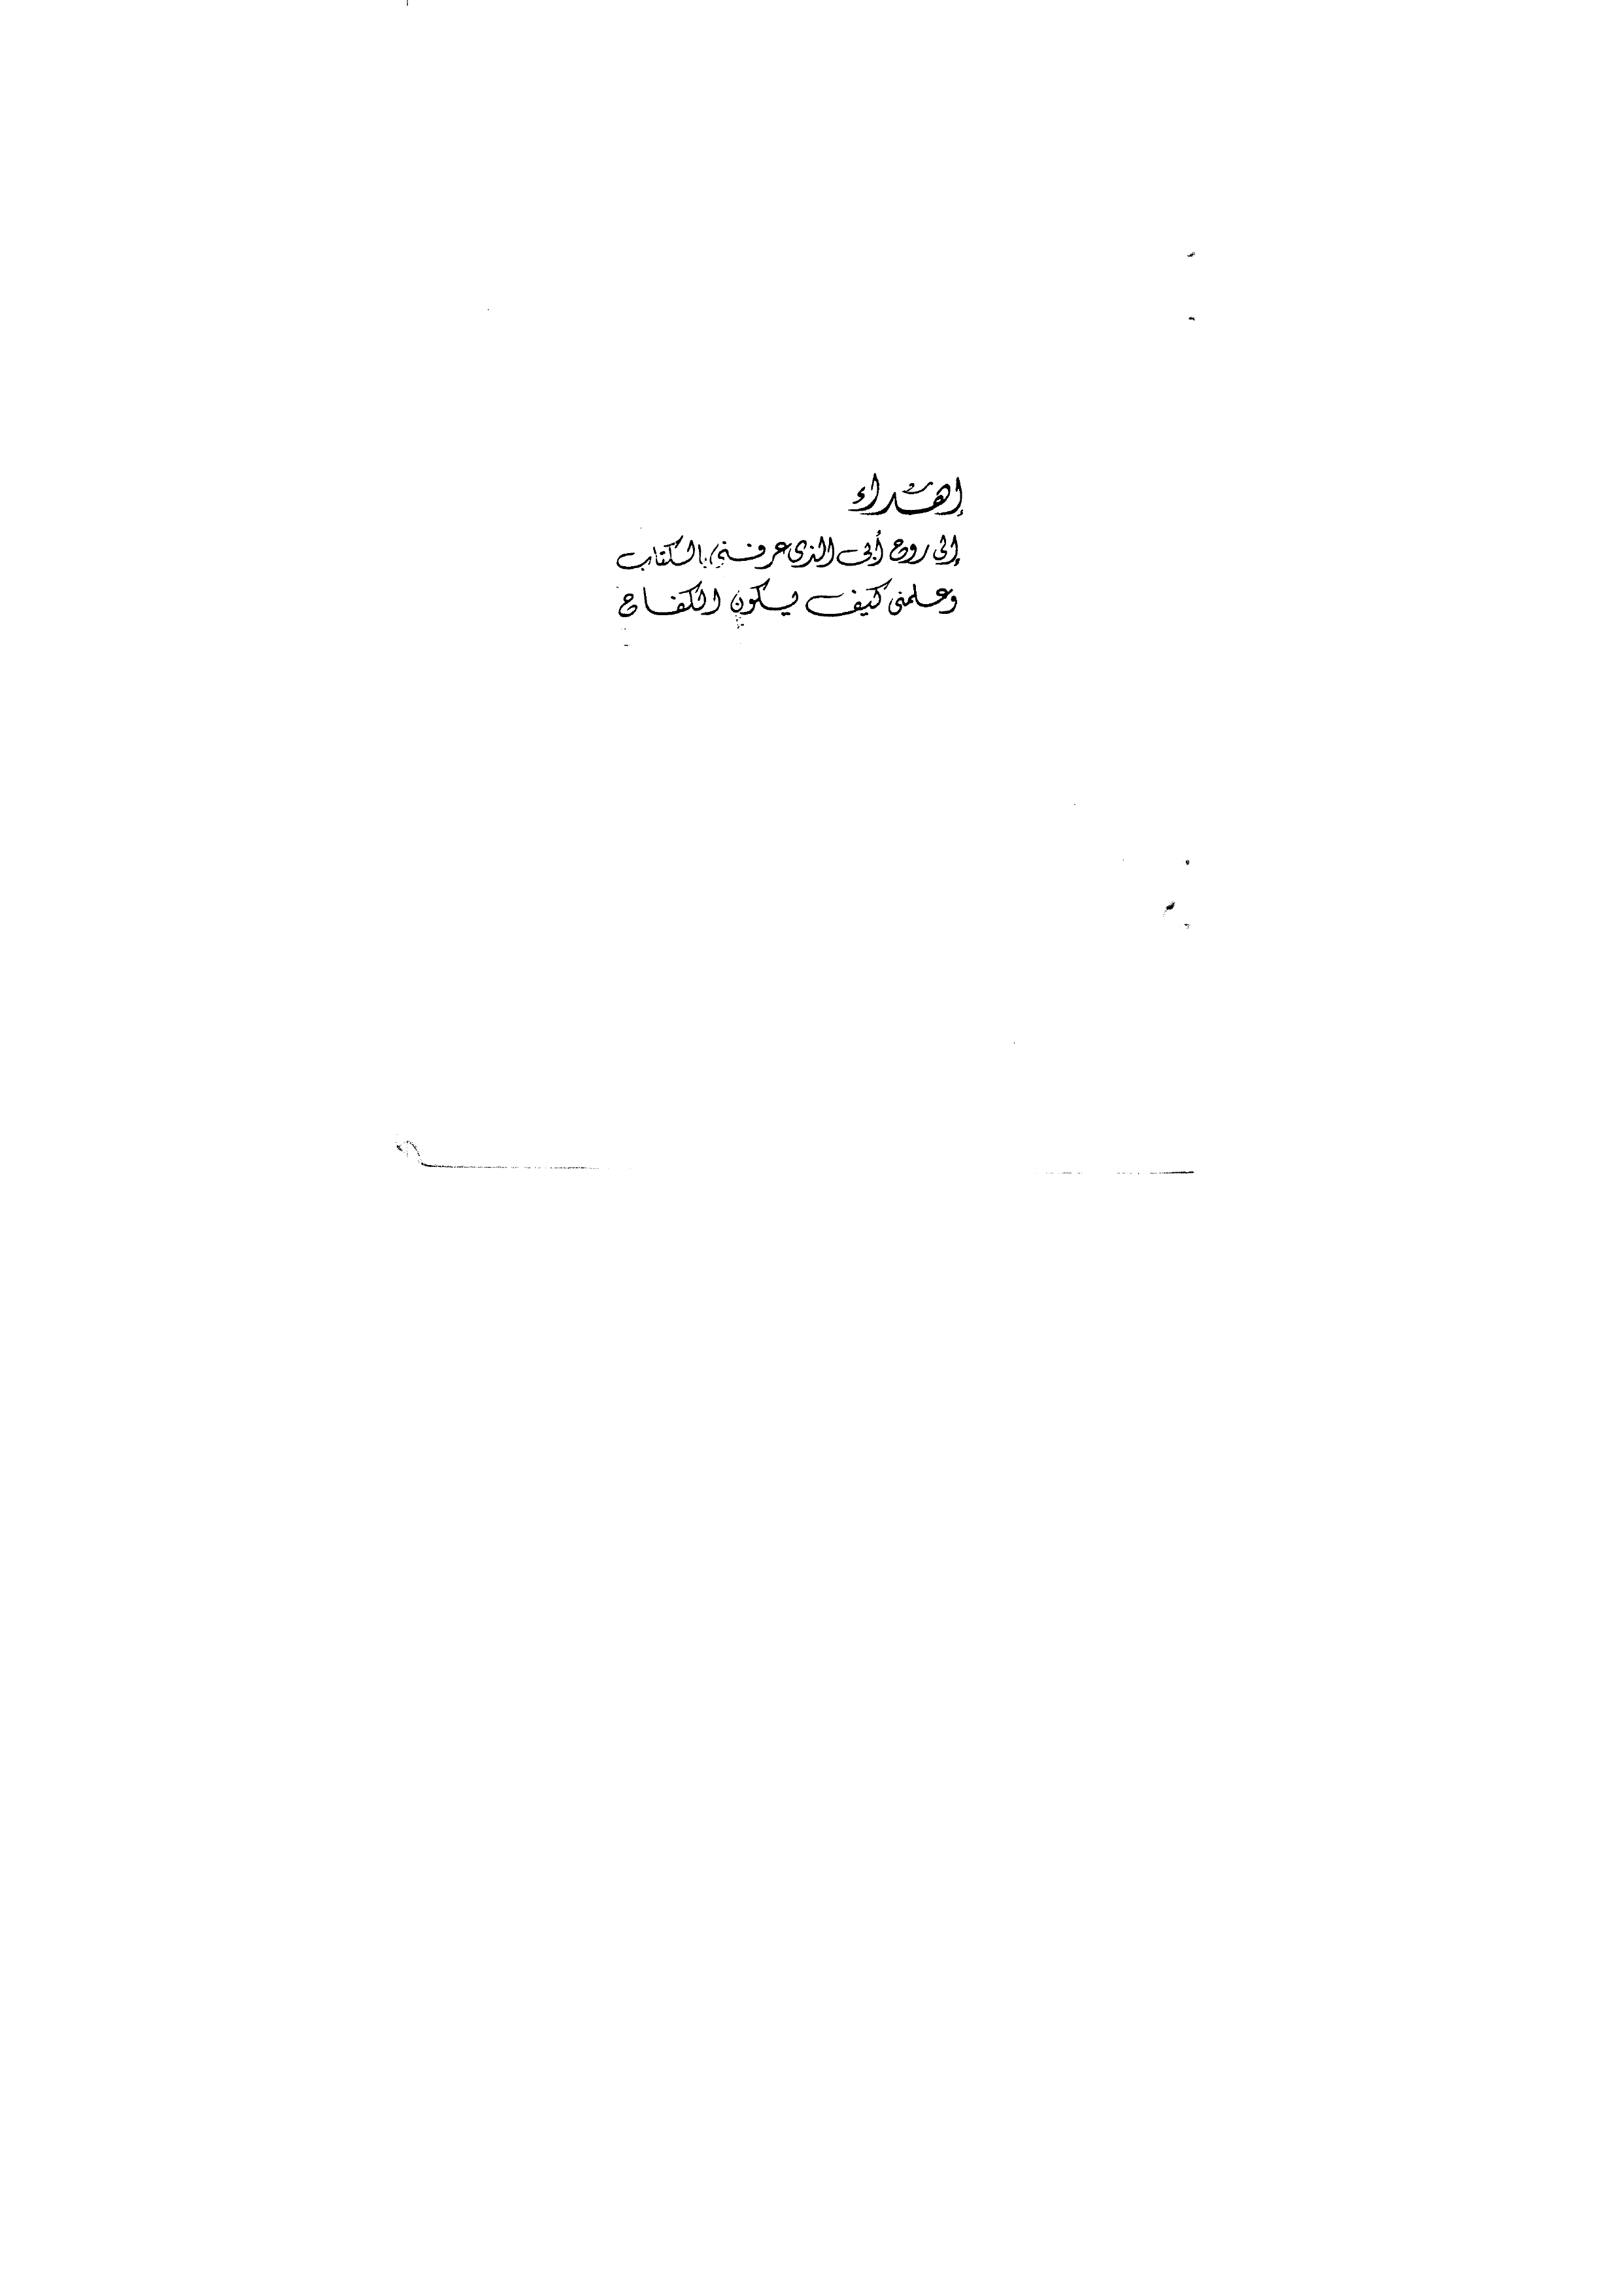 إهداء
إلى روح أبى الذى عرفنى بالكتاب
وعلمنى كيف يكون الكفاح